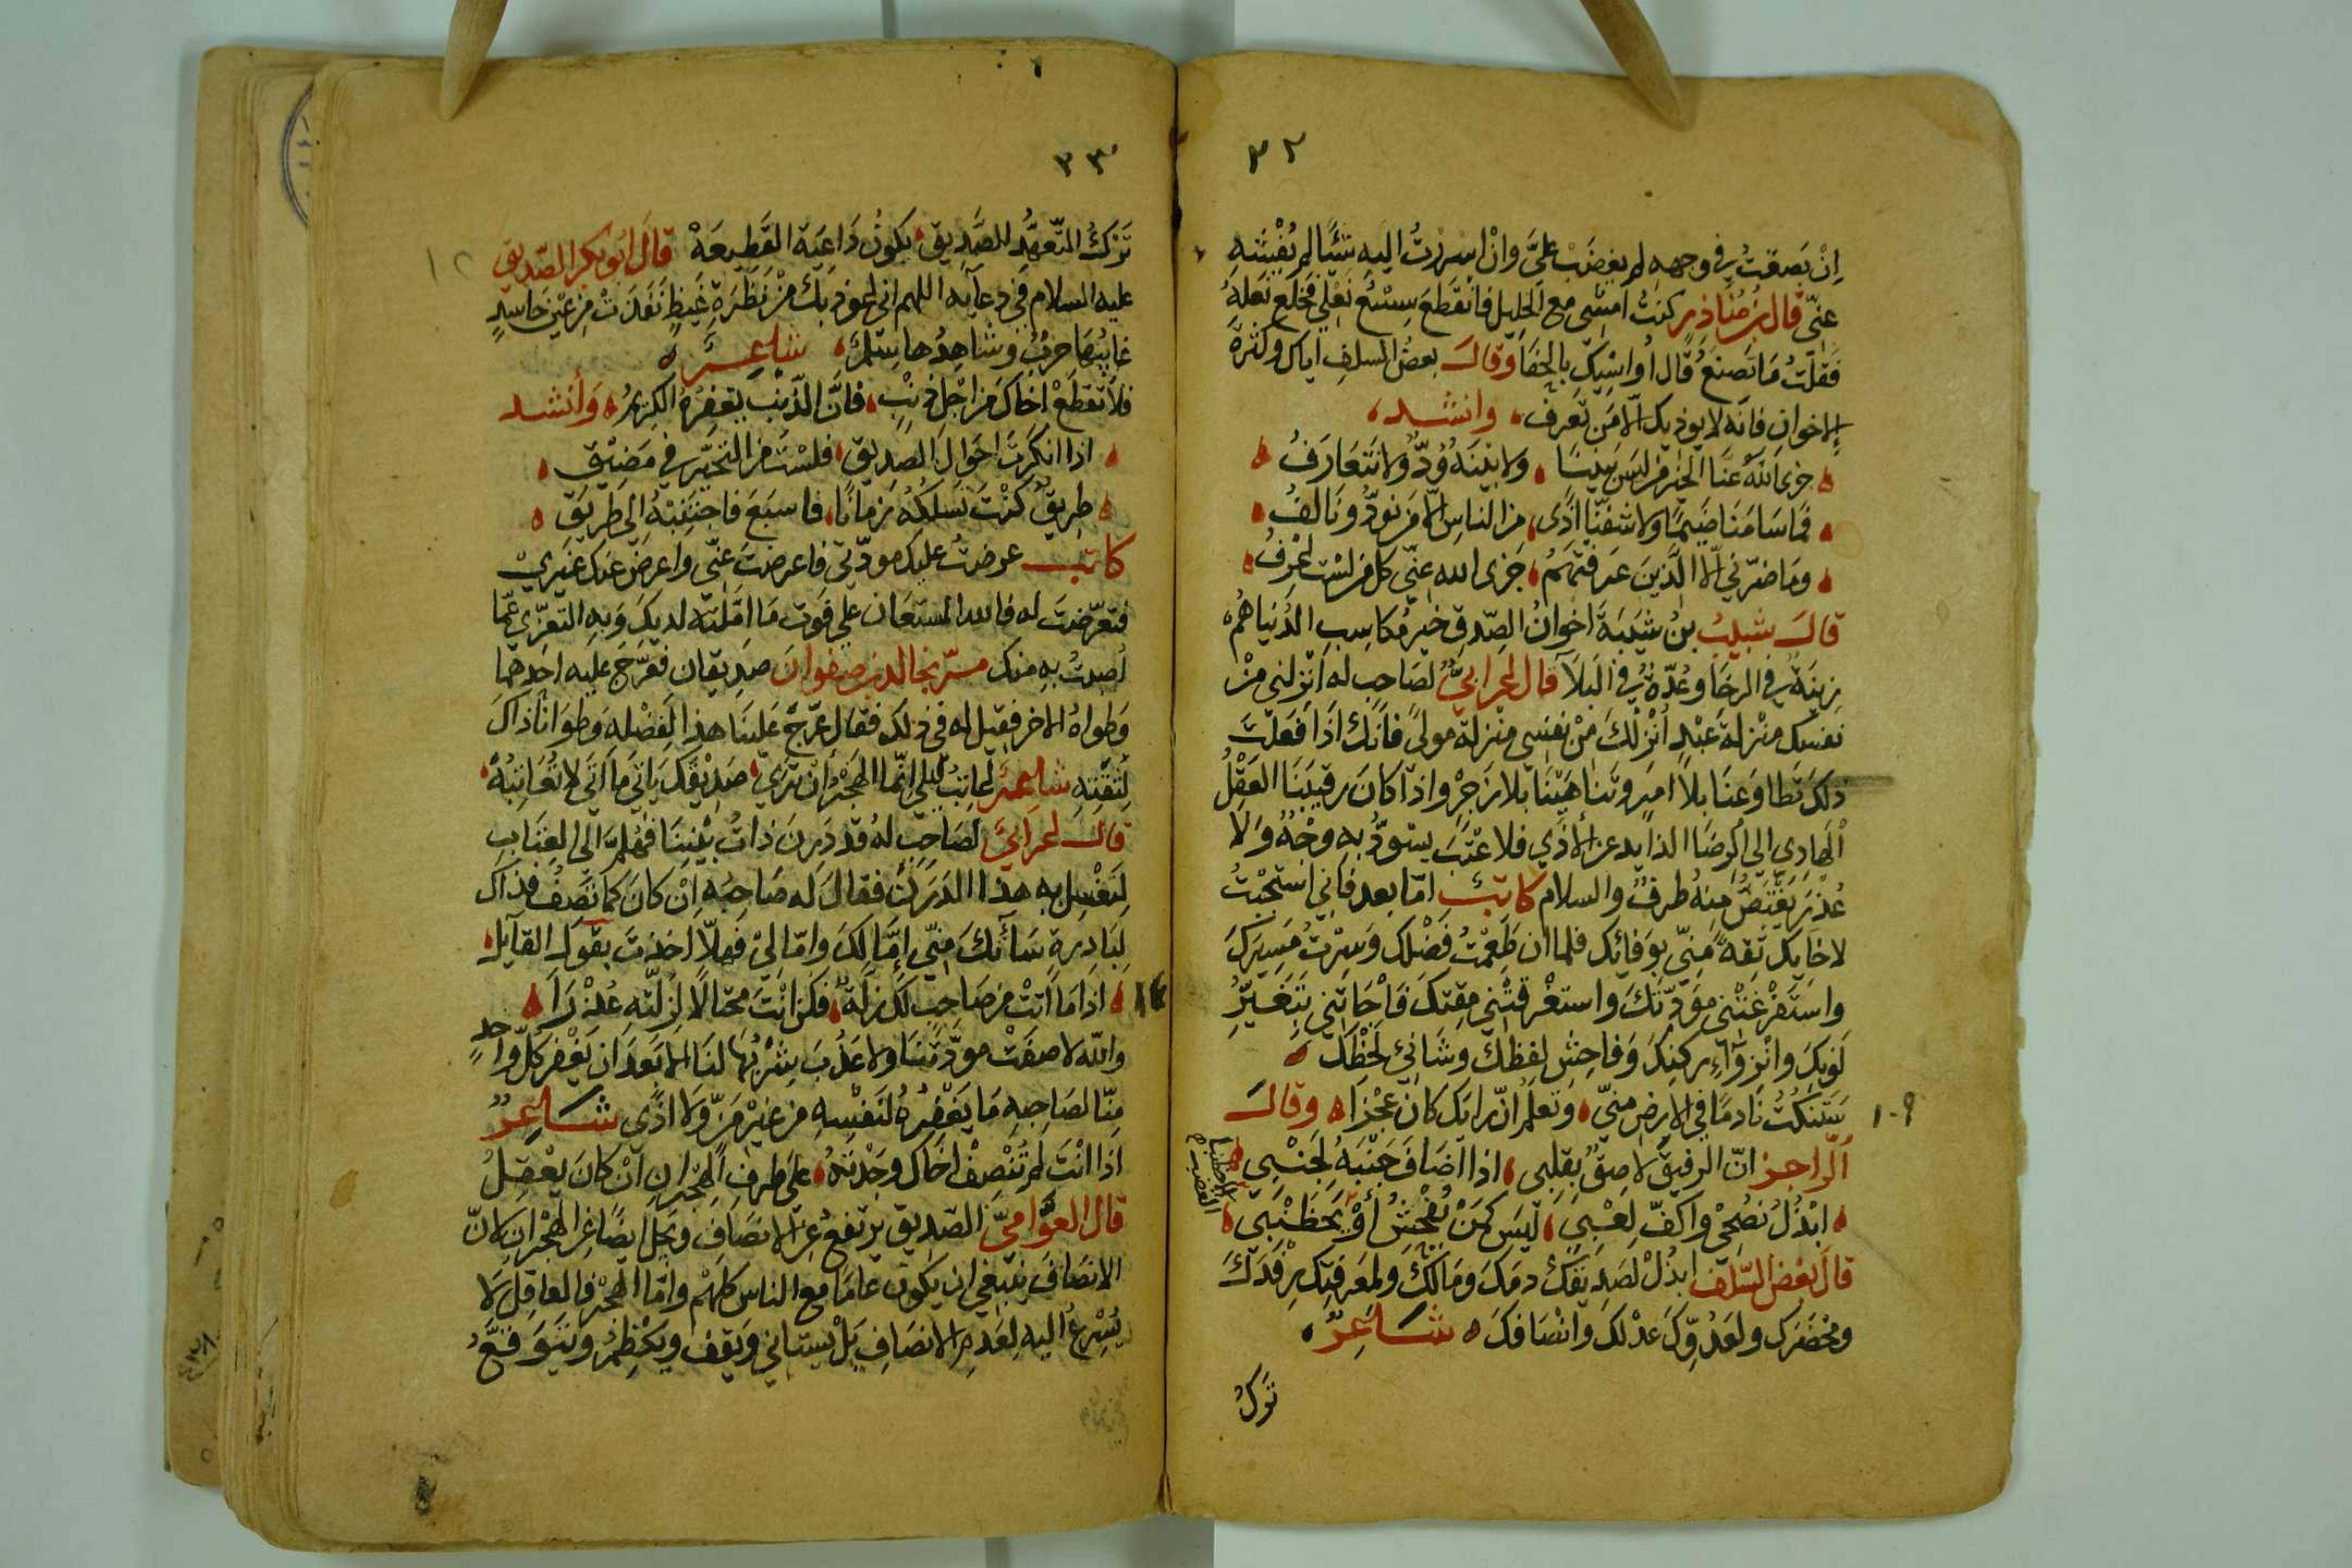 ٣٢
إن بَصقتُ في وجهه لم يغضَبْ عليَّ وإنْ أسررتُ إليه شيئًا لم يُفْشِهِ
عنّي قال بن مُناذِر كنتُ أمشي مع الخليل فانقطعَ شِسْعُ نَعْلي فخلع نَعلهُ
فَقلتُ مَا تَصنَعُ قال أُواسِيكَ بالحفَا وقالَ بعضُ السلفِ اياك وكثرةَ
الاخوانِ فانه لا يوذيك الّا مَن تَعرف وانشد
جزى اللهُ عنّا الخيْرَ مَن ليسَ بَيننَا ولا بيْنَهُ وُدٌّ ولا نَتَعَارَفُ
فما سَامَنَا ضَيمًا ولا شفَّنا اذًى من الناسِ إلّا مَن نودُّ ونَالفُ
ومَا ضرّني إلّا الَّذينَ عَرفتهُمُ جَزى الله عنّي كلَّ من لستُ اعْرِفُ
قالَ شبيبُ بنُ شَيبَةَ اخوانُ الصِّدقِ خيرُ مكاسِبِ الدُنيا هُم
زينَةٌ في الرخَا وعُدّةٌ في البَلآ قال اعرابيٌّ لصَاحبٍ له انزلني مِنْ
نفسك منزلةَ عبْدٍ أُنْزِلكَ مِنْ نفسي منزلة مولىً فانّكَ اذَا فَعَلتَ
ذلكَ تَطاوَعنَا بلا امرٍ وتناهَيْنَا بلا زَجْرٍ واذا كان رقيبَنَا العَقْلُ
الهَادِي إلى الرضَا الذايد عن الأذَي فلا عتْبَ يسْودُّ به وجْهٌ ولا
عُذْرَ يَغُضّ مِنهُ طرفٌ والسلام كاتبٌ امّا بعد فاني استحْبَبتُ
لاخايك ثقةً مِنّي بوَفائك فلما ان طَعِمْتُ فَضْلك وَسِرْتُ مَسِيرَكَ
واستَفْرغَتْني مَوَدّتكَ واستغْرقتْني مِقتكَ فَاجَاتني بتَغَيُّرِ
لَونِكَ وانْزِوَاءِ ركنِكَ وَفاحِشِ لفظِكَ وشَانِئ لَحْظِكَ
سَتَنكُتُ نَادمًا في الارضِ منّي وتعلم انّ رايَك كانَ عَجْزَا وقالَ
١٠٩
الرّاجز انّ الرفيقَ لاصِقٌ بقلبي اذا اضَافَ جَنْبَهُ لجَنْبِي
ابْذُلُ نُصْحِي واكفّ لَغْبِي ليَس كمَنْ يُفْحِشُ أوْ يَحَظَنْبِي
الاحظنبا
الغضب
قالَ بَعْض السّلَف ابذُلْ لصَديقكَ دمَكَ ومَالكَ ولمَعرفتِكَ رِفْدَكَ
ومَحْضَرَك ولعَدُوّكَ عَدْلكَ وانْصَافكَ شَاعِرٌ
تَرْكُ
٣٣
تَرْكُ التَّعهُّدِ للصَّديقِ يكونُ دَاعيَةَ القَطيعَهْ قالَ ابُو بكر الصّديق
١٢
عليه السلام في دعآيه اللهم اني اعوذ بكَ مِنْ نَظْرَةِ غَيظٍ نَفَذَتْ مِن عيْن حَاسِدٍ
غايبُهَا حربٌ وشَاهِدُها سَلمٌ شاعِرٌ
فلا تَقطَعْ اخَاكَ من اجْلِ ذنْبٍ فانَّ الذّنبَ يَغفِرُهُ الكريمُ وَأنشد
اذا انكَرتَ احْوالَ الصَديقِ فلسْتَ من التحيّر في مَضِيقِ
طريقٌ كنْتَ تَسلكُهُ زمانًا فاسبَعَ فاجتَنِبْهُ إلى طَريقِ
كاتب عرضتُ عليكَ مودّتي فاعرضتَ عنّي واعرضَ عنك غيري
فتعرّضتَ له فالله المستعان علي فَوتِ مَا امّلتُه لديكَ وَبهِ التعزّي عمّا
اصبتُ بِه منك مرّ بخالد بن صفوانَ صَديقان فعَرّجَ عليه احدهما
وَطواهُ الاخر فقيل له في ذلك فقال عَرّج عَليْنَا هذا لفَضْلهِ وَطوَانا ذاكَ
لثقتِهِ شاعِرٌ اعَاتبُ ليلي انّما الهَجْرُ أنْ تَرَي صَدِيقَكَ ياتي ما اتَي لا تُعَاتِبُهُ
قالَ اعرابيٌّ لصَاحبٍ لهُ قد دَرِنَ ذاتُ بيْنِنَا فهَلمَّ الى العِتَابِ
لِنَغْسِلَ به هذا الدَرَنَ فقالَ له صَاحبُه إن كانَ كمَا تَصِفُ فذاكَ
لبَادِرةٍ سَآءتْكَ مِنّي إمّا لكَ وامّا لِيْ فهلّا اخذتَ بقَولِ القآيل
اذا مَا اتتْ من صَاحبٍ لكَ زلّةٌ فكن انْتَ محتالًا لزلّته عُذْرَا
والله لا صفَتْ مودّتنَا ولا عَذُبَ شِرْبُها لنَا إلّا بعَد ان يَغْفِرَ كلّ واحدٍ
مِنّا لصَاحِبهِ مَا يَغْفِرُهُ لنفْسِهِ من غيْر مَنٍّ وَلا اذًي شَاعِرٌ
اذَا انْتَ لم تُنْصِفْ اخَاك وجَدْتَهُ علَى طرفِ الهِجْرانِ انْ كانَ يعْقِلُ
قال العوَّاميّ الصّديق يرتفعُ عن الانصَافِ ويَجِلُّ ايضًا عن الهجْران لانّ
الانصَافَ ينبَغي ان يكون عامًا مع الناس كلهمْ وامّا الهَجْر فالعاقِلُ لا
يُسْرعُ اليه لعَدمِ الانصَافِ بَلْ يستاني وَيقف ويكْظِمُ ويتَوَقّعُ